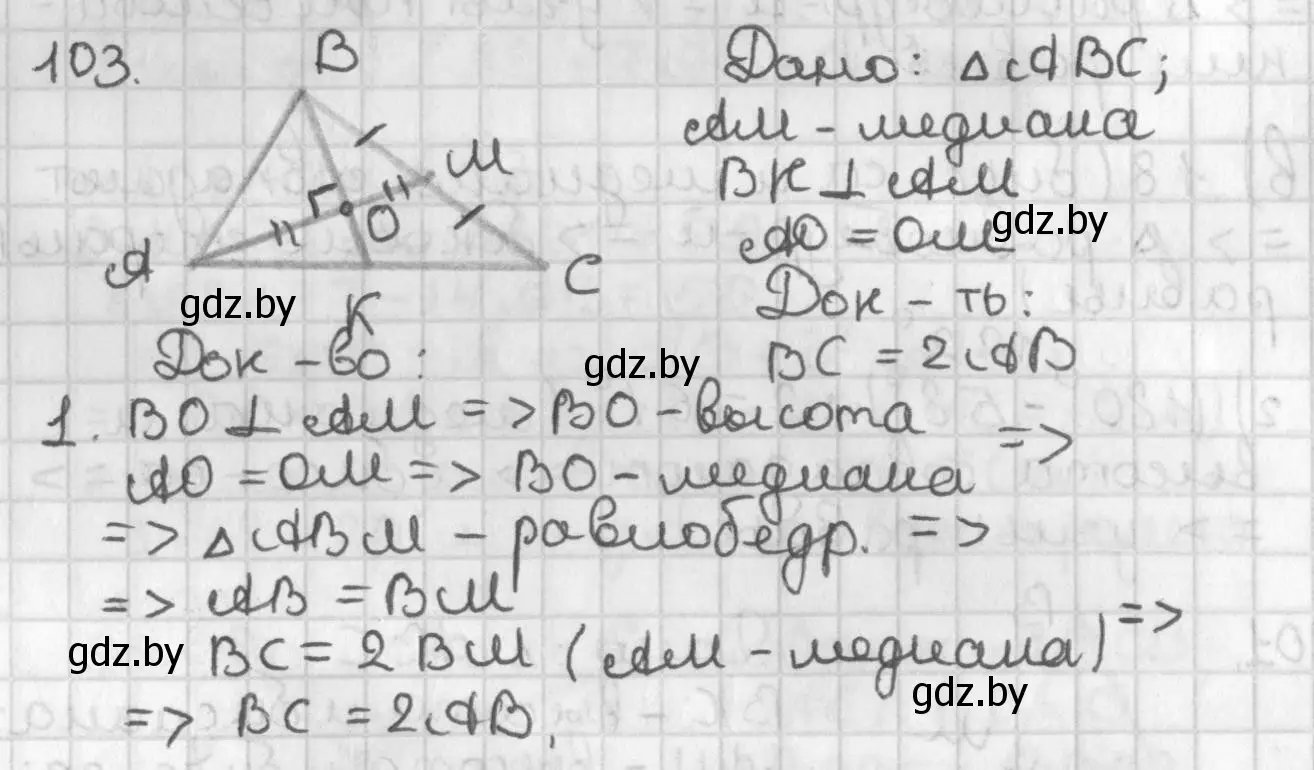 103.
B
M
О
А
С
К
Дано: △ABC;
AM - медиана
BK ⊥ AM
gdz.by
AO = OM
Док - ть:
BC = 2AB
gdz.by
gdz.by
Док - во:
1. BO ⊥ AM => BO - высота
AO = OM => BO - медиана =>
=> △ABM - равнобедр. =>
=> AB = BM
gdz.by
BC = 2BM (AM - медиана) =>
gdz.by
=> BC = 2AB.